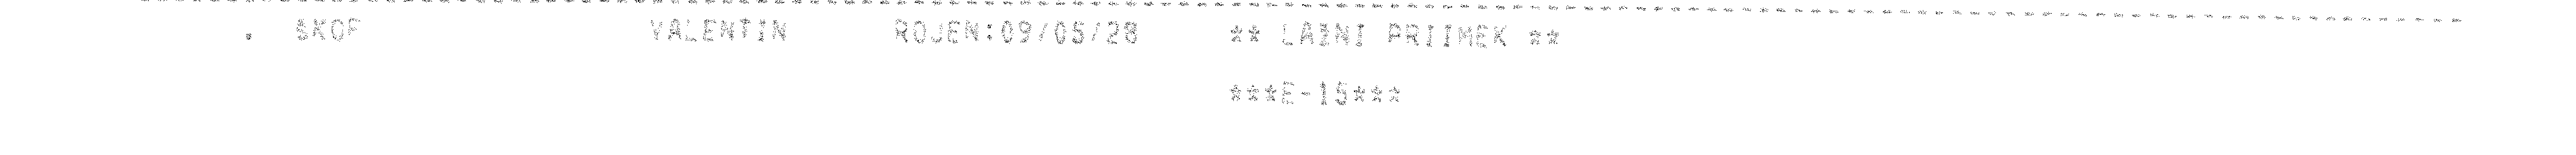 . SKOF VALENTIN ROJEN:09/05/28 ** LAZNI PRIIMEK **
***E-15***